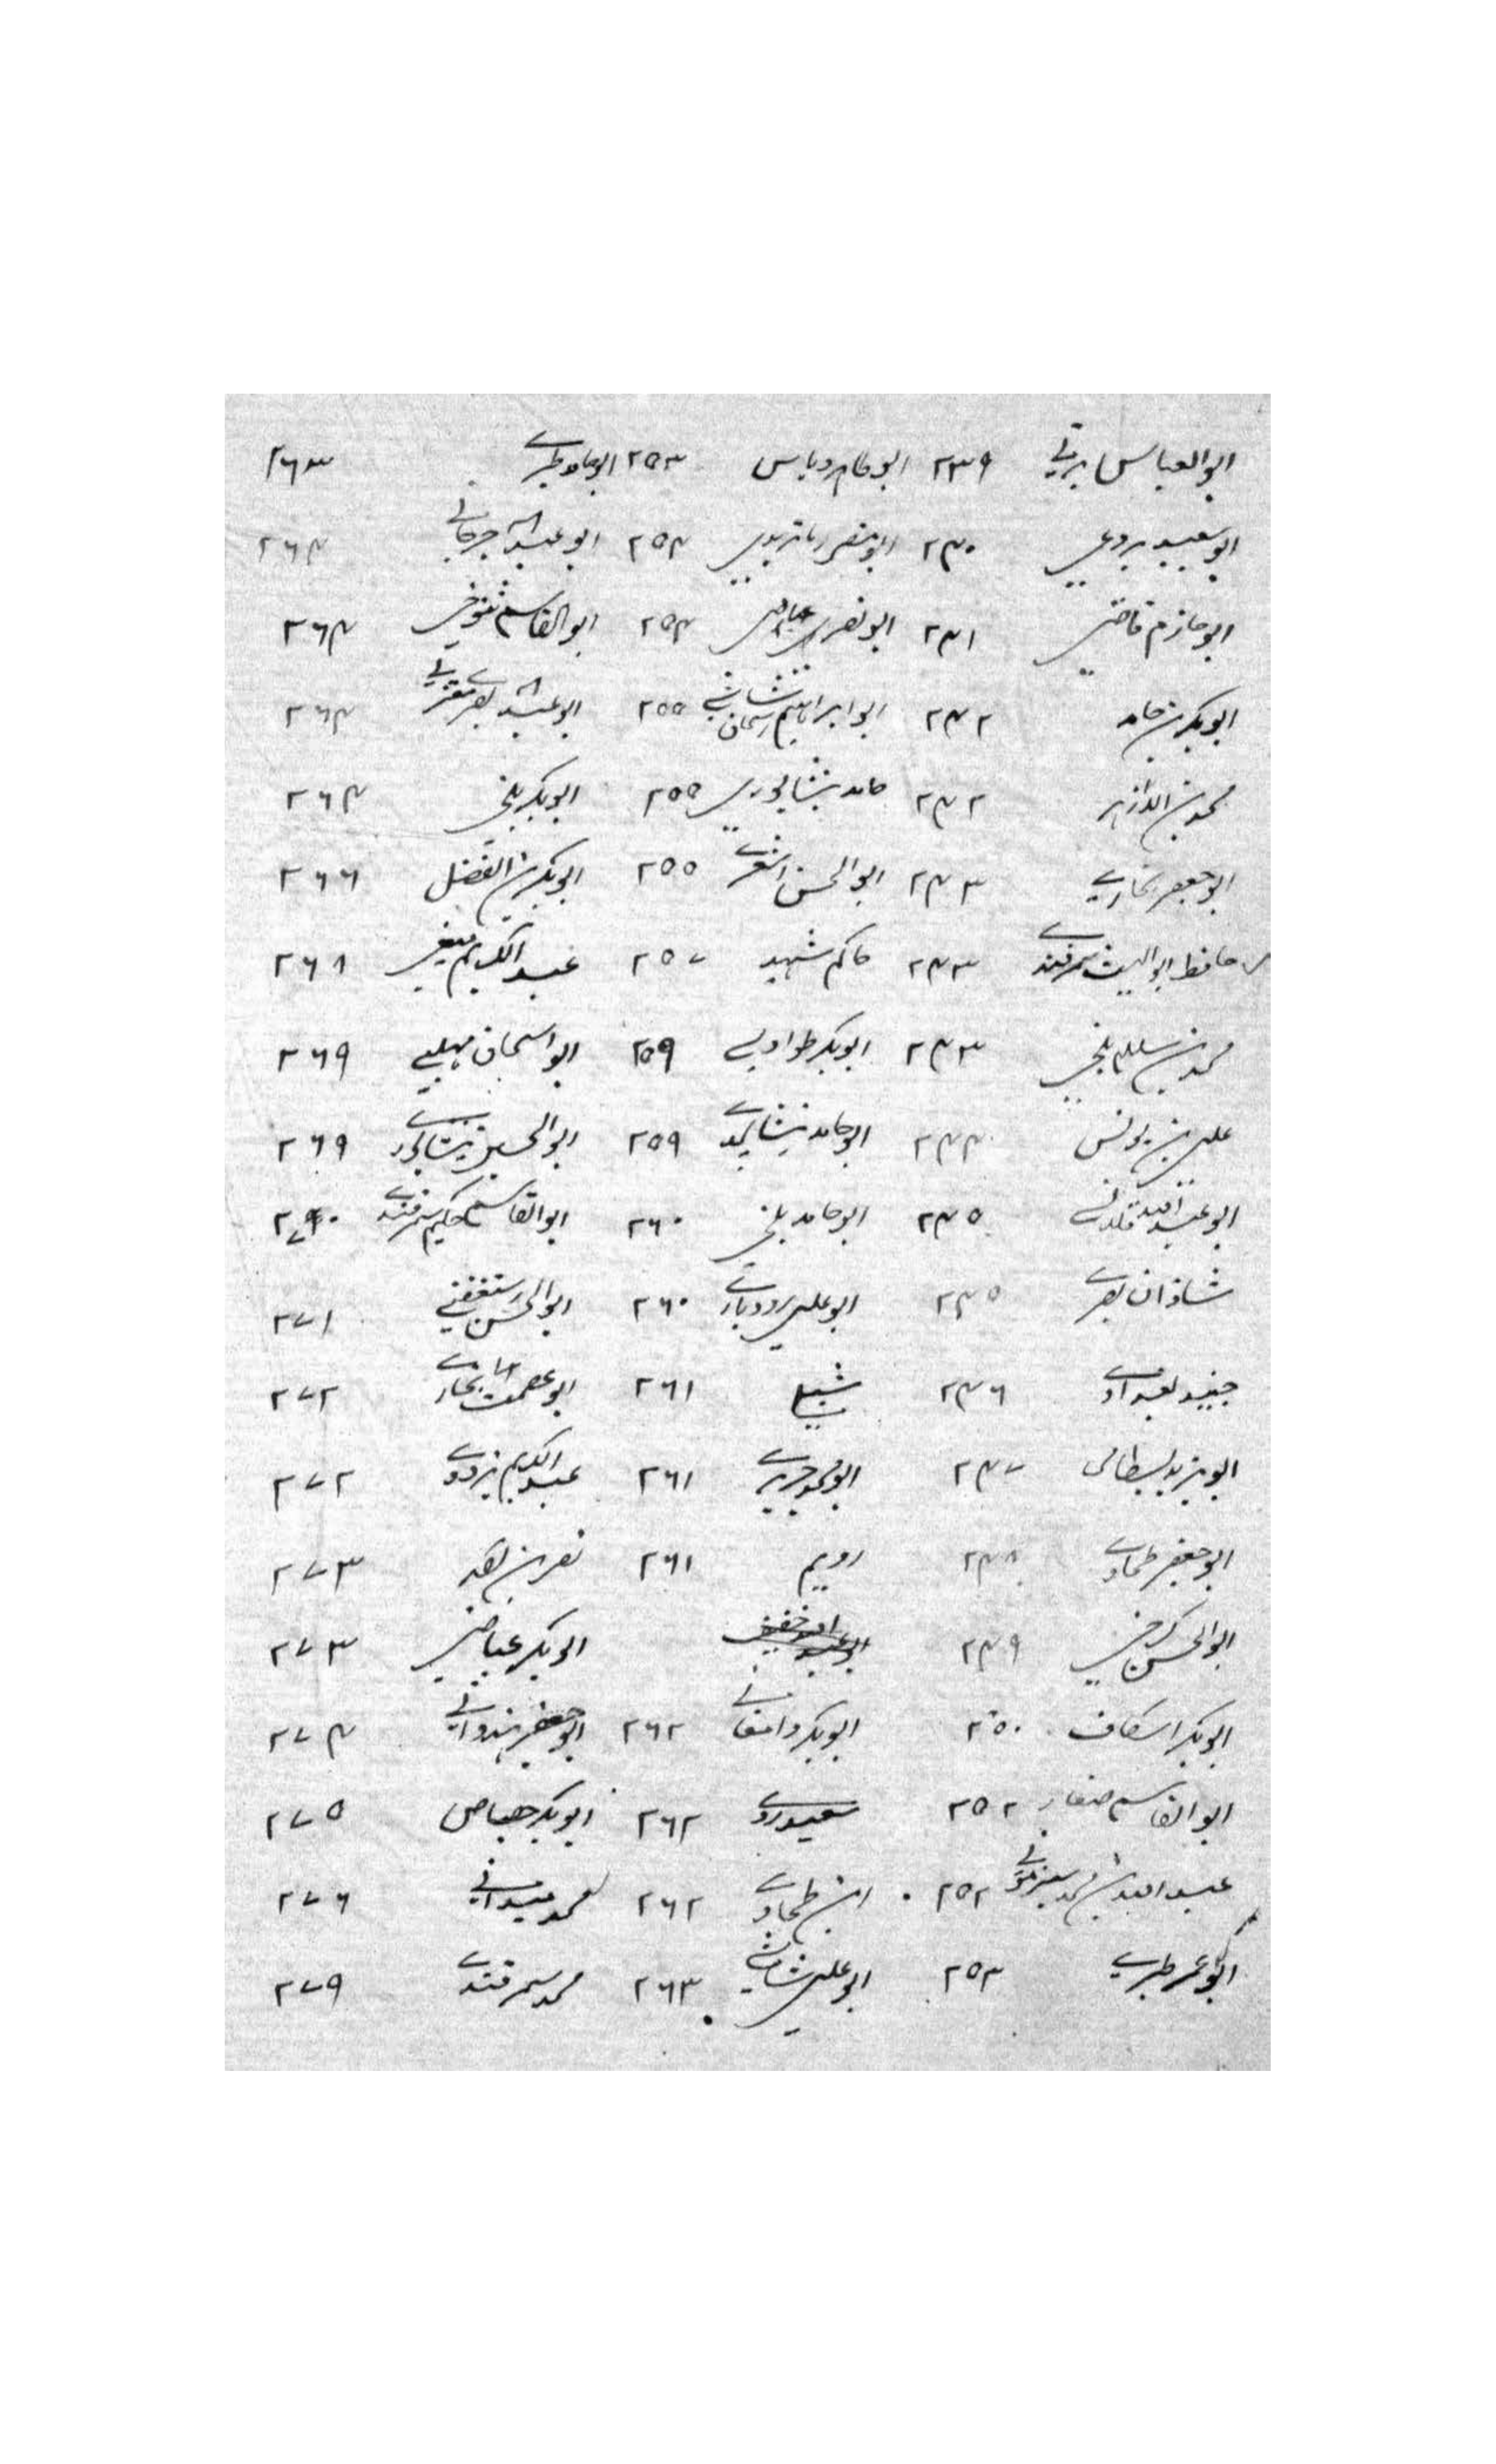 ابو العباس برتی ۲۳۹ ابو طاہر دباس ۲۵۳ ابو حامد طبری ۲۶۳
ابو سعید بردعی ۲۴۰ ابو منصور ماتریدی ۲۵۴ ابو عبد اللہ جرجانی ۲۶۴
ابو حازم قاضی ۲۴۱ ابو نصر ۲۵۴ ابو القاسم تنوخی ۲۶۴
ابو بکر بن حامد ۲۴۲ ابو ابراہیم شاشی ۲۵۵ ابو عبد اللہ بصری معتزلی ۲۶۴
محمد بن ۲۴۲ حامد نیشاپوری ۲۵۵ ابو بکر بلخی ۲۶۴
ابو جعفر بخاری ۲۴۳ ابو الحسن اشعری ۲۵۵ ابو بکر بن الفضل ۲۶۶
حافظ ابو اللیث سمرقندی ۲۴۳ حاکم شہید ۲۵۷ عبد الکریم میغی ۲۶۸
محمد بن سلام بلخی ۲۴۳ ابو بکر طواویسی ۲۵۹ ابو اسحاق مہلبی ۲۶۹
علی بن یونس ۲۴۴ ابو حامد ۲۵۹ ابو الحسین نیشاپوری ۲۶۹
ابو عبد اللہ ۲۴۵ ابو حامد بلخی ۲۶۰ ابو القاسم حکیم سمرقندی ۲۷۰
شاذان بصری ۲۴۵ ابو علی رودباری ۲۶۰ ابو الحسن رستغفنی ۲۷۱
جنید بغدادی ۲۴۶ شبلی ۲۶۱ ابو عصمت بخاری ۲۷۲
ابو یزید بسطامی ۲۴۷ ابو محمد جریری ۲۶۱ عبد الکریم بزدوی ۲۷۲
ابو جعفر طحاوی ۲۴۸ رویم ۲۶۱ نصر بن ۲۷۳
ابو الحسن کرخی ۲۴۹ ابو عبد اللہ خفیف ابو بکر عیاضی ۲۷۳
ابو بکر اسکاف ۲۵۰ ابو بکر دامغانی ۲۶۲ ابو جعفر ہندوانی ۲۷۴
ابو القاسم صفار ۲۵۲ سعید ۲۶۲ ابو بکر جصاص ۲۷۵
عبد اللہ بن محمد سبذمونی ۲۵۲ ابن طحاوی ۲۶۲ محمد میدانی ۲۷۶
ابو عمر طبری ۲۵۳ ابو علی شاشی ۲۶۳ محمد سمرقندی ۲۷۹